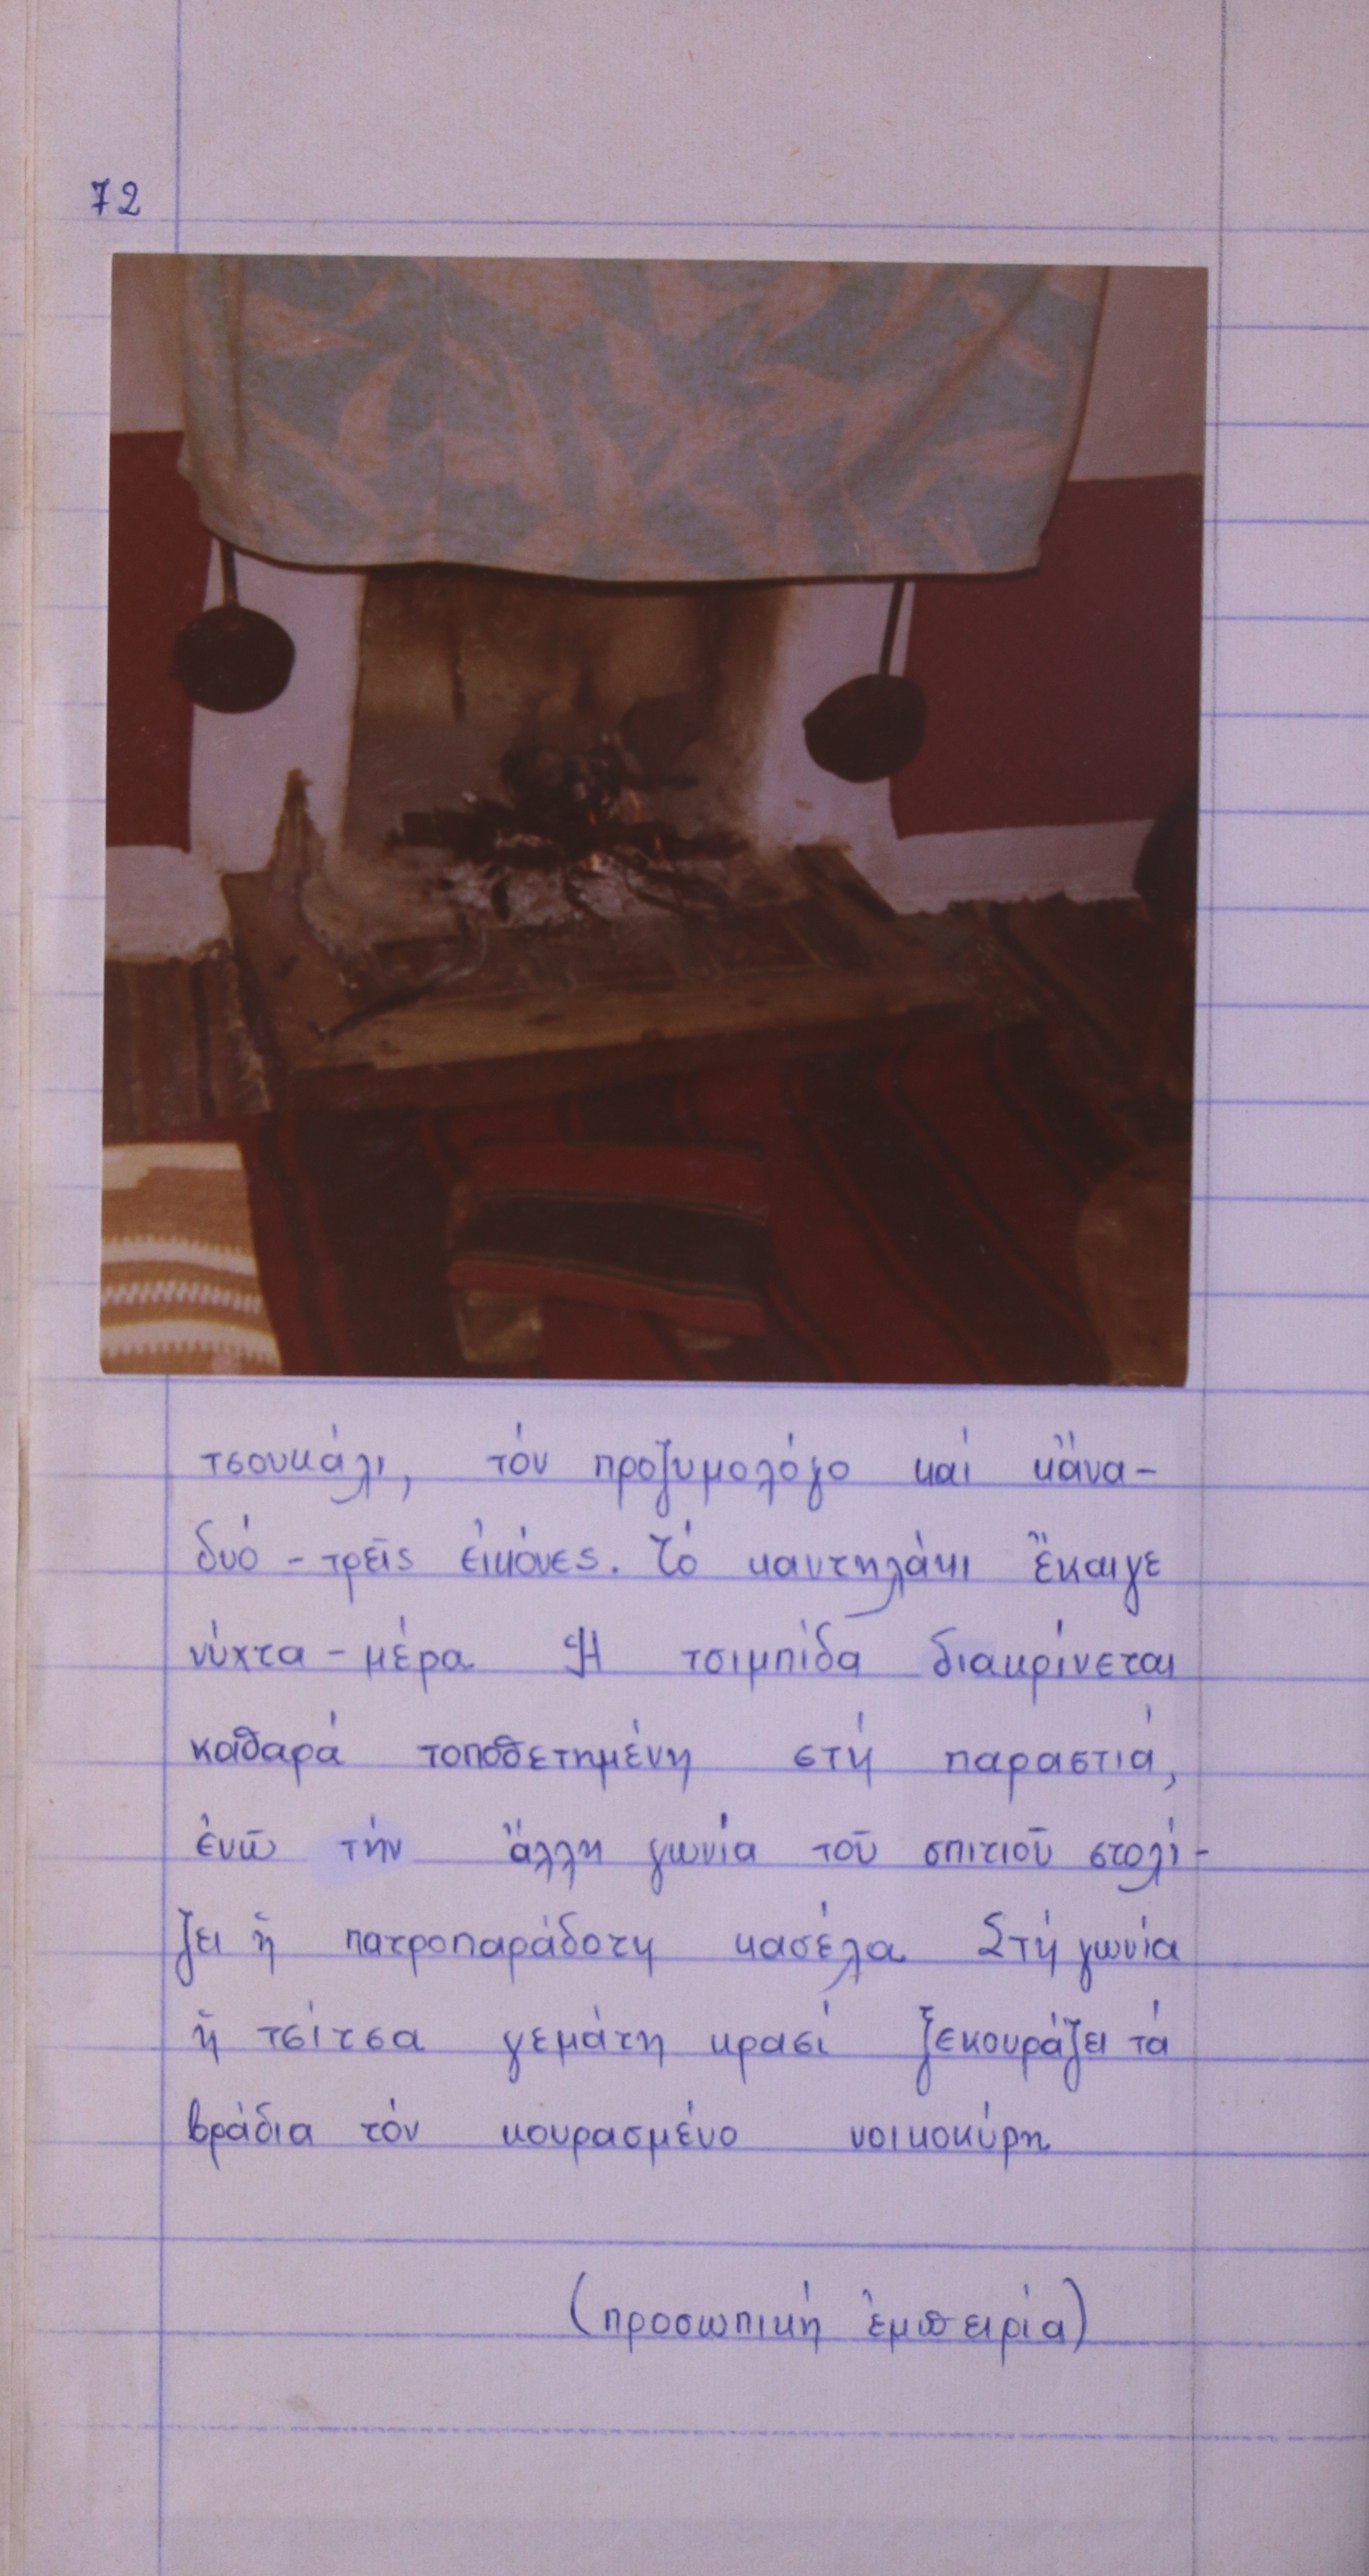 72
τσουκάλι, τόν προζυμολόγο καί κἄνα-
δυό - τρεῖς εἰκόνες. Τό καντηλάκι ἔκαιγε
νύχτα - μέρα Ἡ τσιμπίδα διακρίνεται
καθαρά τοποθετημένη στή παραστιά,
ἐνῶ τήν ἄλλη γωνία τοῦ σπιτιοῦ στολί-
ζει ἡ πατροπαράδοτη κασέλα Στή γωνία
ἡ τσίτσα γεμάτη κρασί ξεκουράζει τά
βράδια τόν κουρασμένο νοικοκύρη
(προσωπική ἐμπειρία)